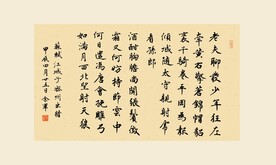 老夫聊發少年狂左
牽黃右擎蒼錦帽貂
裘千騎卷平岡為報
傾城隨太守親射虎
看孫郎
酒酣胸膽尚開張鬢微
霜又何妨持節雲中
何日遣馮唐會挽雕弓
如滿月西北望射天狼
蘇軾江城子密州出獵
甲辰四月五日